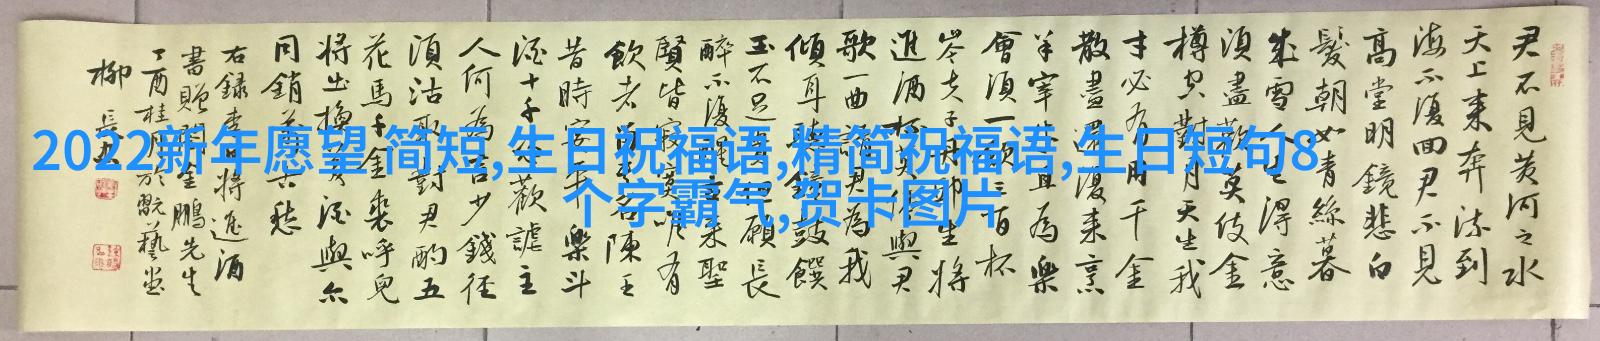 2022新年愿望 简短,生日祝福语,精简祝福语,生日短句8
个字霸气,贺卡图片
君不見黃河之水
天上来奔流到
海不復回君不見
高堂明鏡悲白
髮朝如青絲暮
成雪人生得意
須盡歡莫使金
樽空對月天生我
才必有用千金
散盡還復来烹
羊宰牛且為樂
會須一飲三百杯
岑夫子丹邱生将
進酒杯莫停與君
歌一曲請君為我
傾耳聽鐘鼓饌
玉不足貴但願長
醉不復醒古来聖
賢皆寂寞唯有
飲者留其名陳王
昔時宴平樂斗
酒十千恣歡謔主
人何為言少錢徑
須沽取對君酌五
花馬千金裘呼兒
将出換美酒與尔
同銷萬古愁
右録李白将進酒
書贈金鵬先生
丁酉桂月於翫藝堂
柳長忠